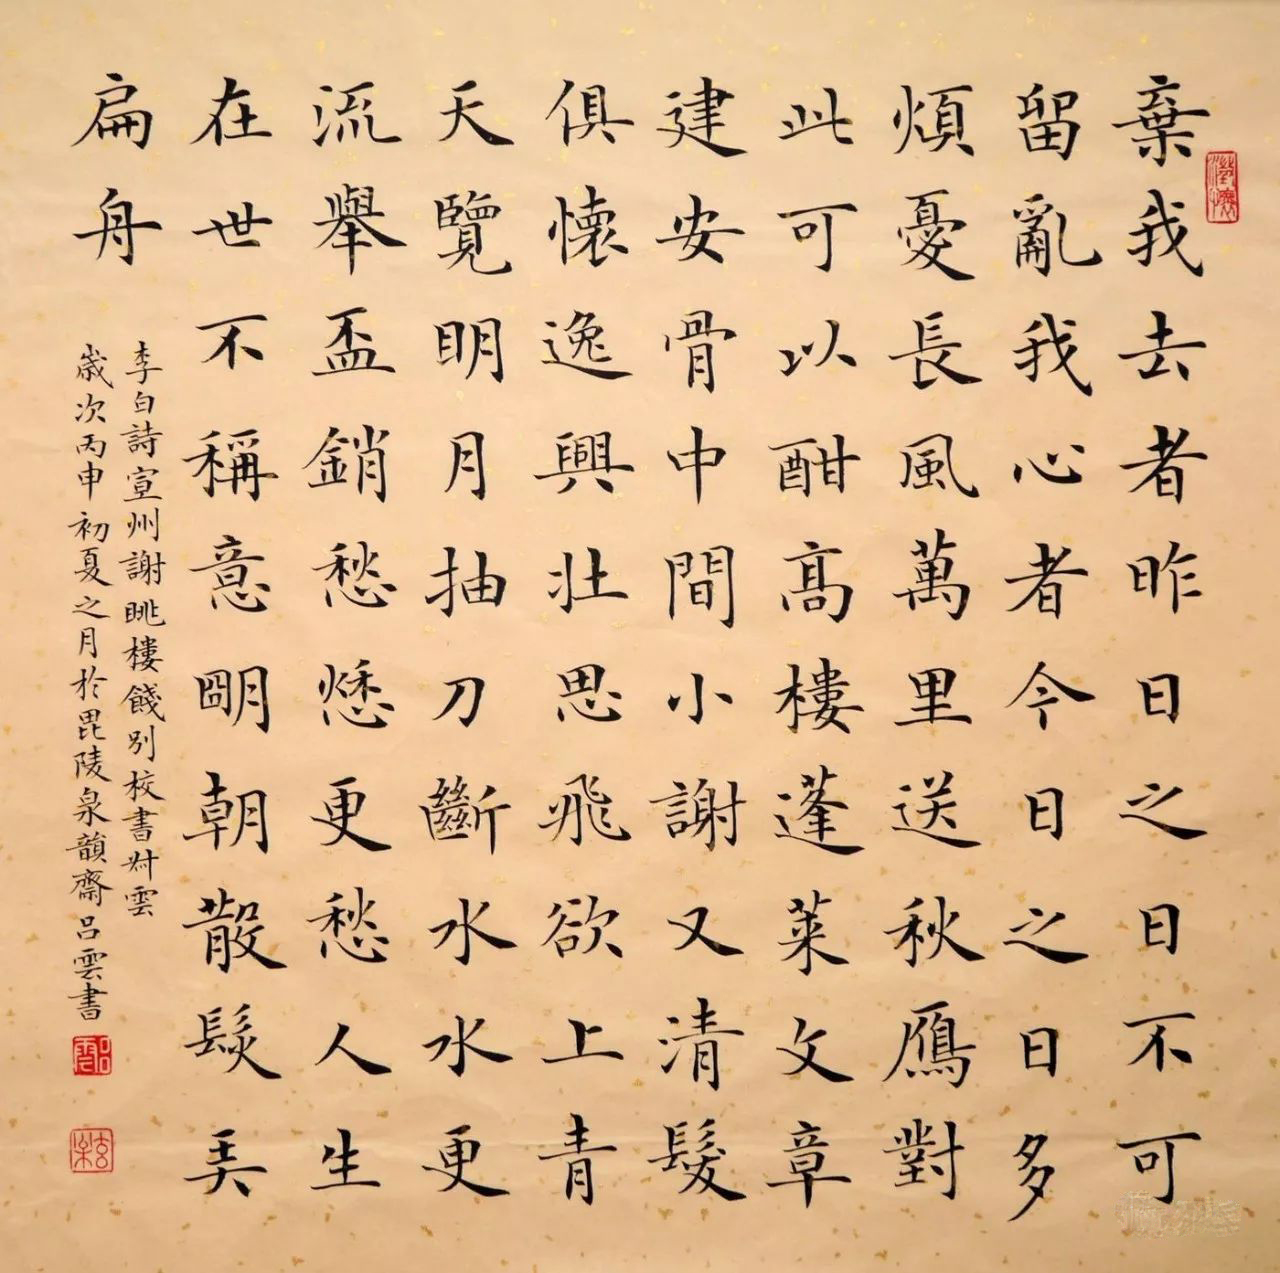 棄我去者昨日之日不可
留亂我心者今日之日多
煩憂長風萬里送秋鴈對
此可以酣高樓蓬萊文章
建安骨中間小謝又清髮
俱懷逸興壯思飛欲上青
天覽明月抽刀斷水水更
流舉盃銷愁愁更愁人生
在世不稱意明朝散髮弄
扁舟
李白詩宣州謝眺樓餞別校書叔雲
歲次丙申初夏之月於毘陵泉韻齋吕雲書